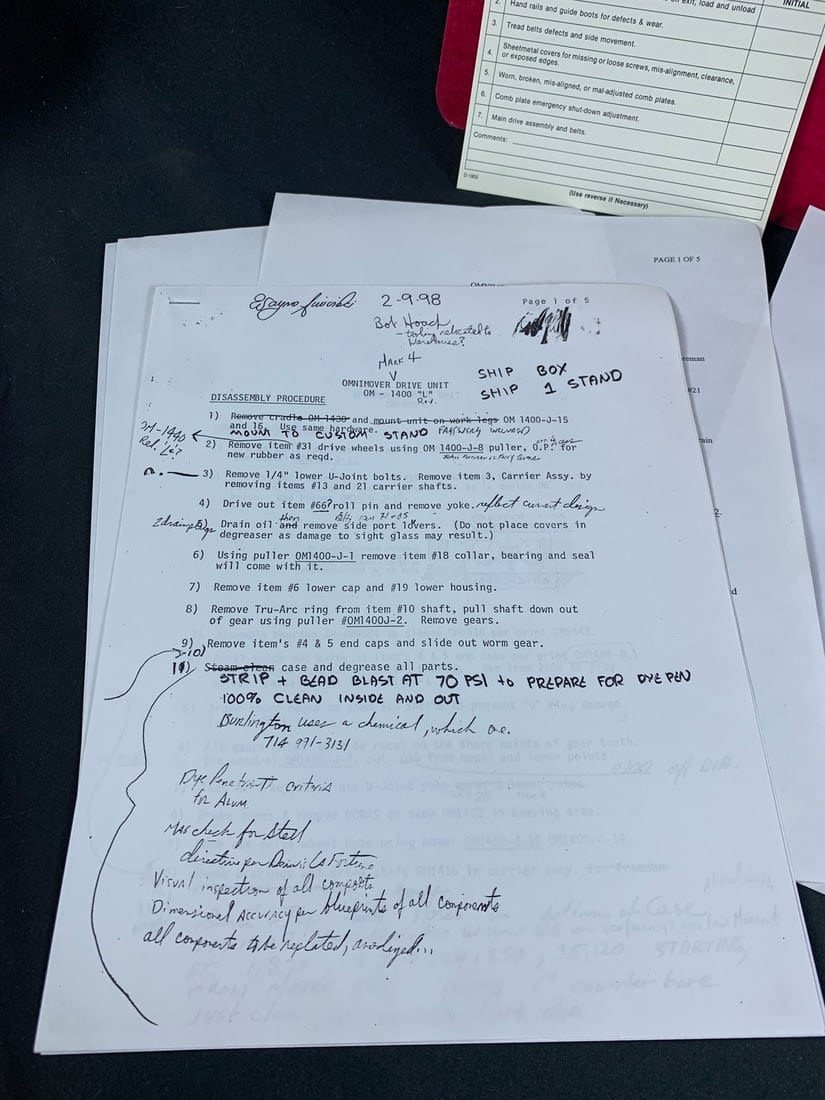 exit, load and unload
INITIAL
2. Hand rails and guide boots for defects & wear.
3. Tread belts defects and side movement.
4. Sheetmetal covers for missing or loose screws, mis-alignment, clearance,
or exposed edges.
5. Worn, broken, mis-aligned, or mal-adjusted comb plates.
6. Comb plate emergency shut-down adjustment.
7. Main drive assembly and belts.
Comments:
D-1900
(Use reverse if Necessary)
PAGE 1 OF 5
2-9-98
Page 1 of 5
Bob
- tooling relocated to
warehouse?
MARK 4
SHIP BOX
SHIP 1 STAND
OMNIMOVER DRIVE UNIT
OM - 1400 "L"
Rev.
DISASSEMBLY PROCEDURE
1) Remove cradle OM 1430 and mount unit on work legs OM 1400-J-15
and 16. Use same hardware.
MOUNT TO CUSTOM STAND
OM-1440
2) Remove item #31 drive wheels using OM 1400-J-8 puller, O.P. for
new rubber as reqd.
3) Remove 1/4" lower U-Joint bolts. Remove item 3, Carrier Assy. by
removing items #13 and 21 carrier shafts.
4) Drive out item #66? roll pin and remove yoke. reflect current design
2 drain plugs
5) Drain oil and then remove side port covers. (Do not place covers in
degreaser as damage to sight glass may result.)
6) Using puller OM1400-J-1 remove item #18 collar, bearing and seal
will come with it.
7) Remove item #6 lower cap and #19 lower housing.
8) Remove Tru-Arc ring from item #10 shaft, pull shaft down out
of gear using puller #OM1400J-2. Remove gears.
9) Remove item's #4 & 5 end caps and slide out worm gear.
10)
11) Steam clean case and degrease all parts.
STRIP + BEAD BLAST AT 70 PSI to PREPARE FOR DYE PEN
100% CLEAN INSIDE AND OUT
Burlington uses a chemical, which one.
714 991-3131
Dye Penetrant criteria
for Alum
Mag check for steel
directive per Dennis La Fortune
Visual inspection of all
Dimensional Accuracy per blueprints of all components
all components to be replated, anodized...